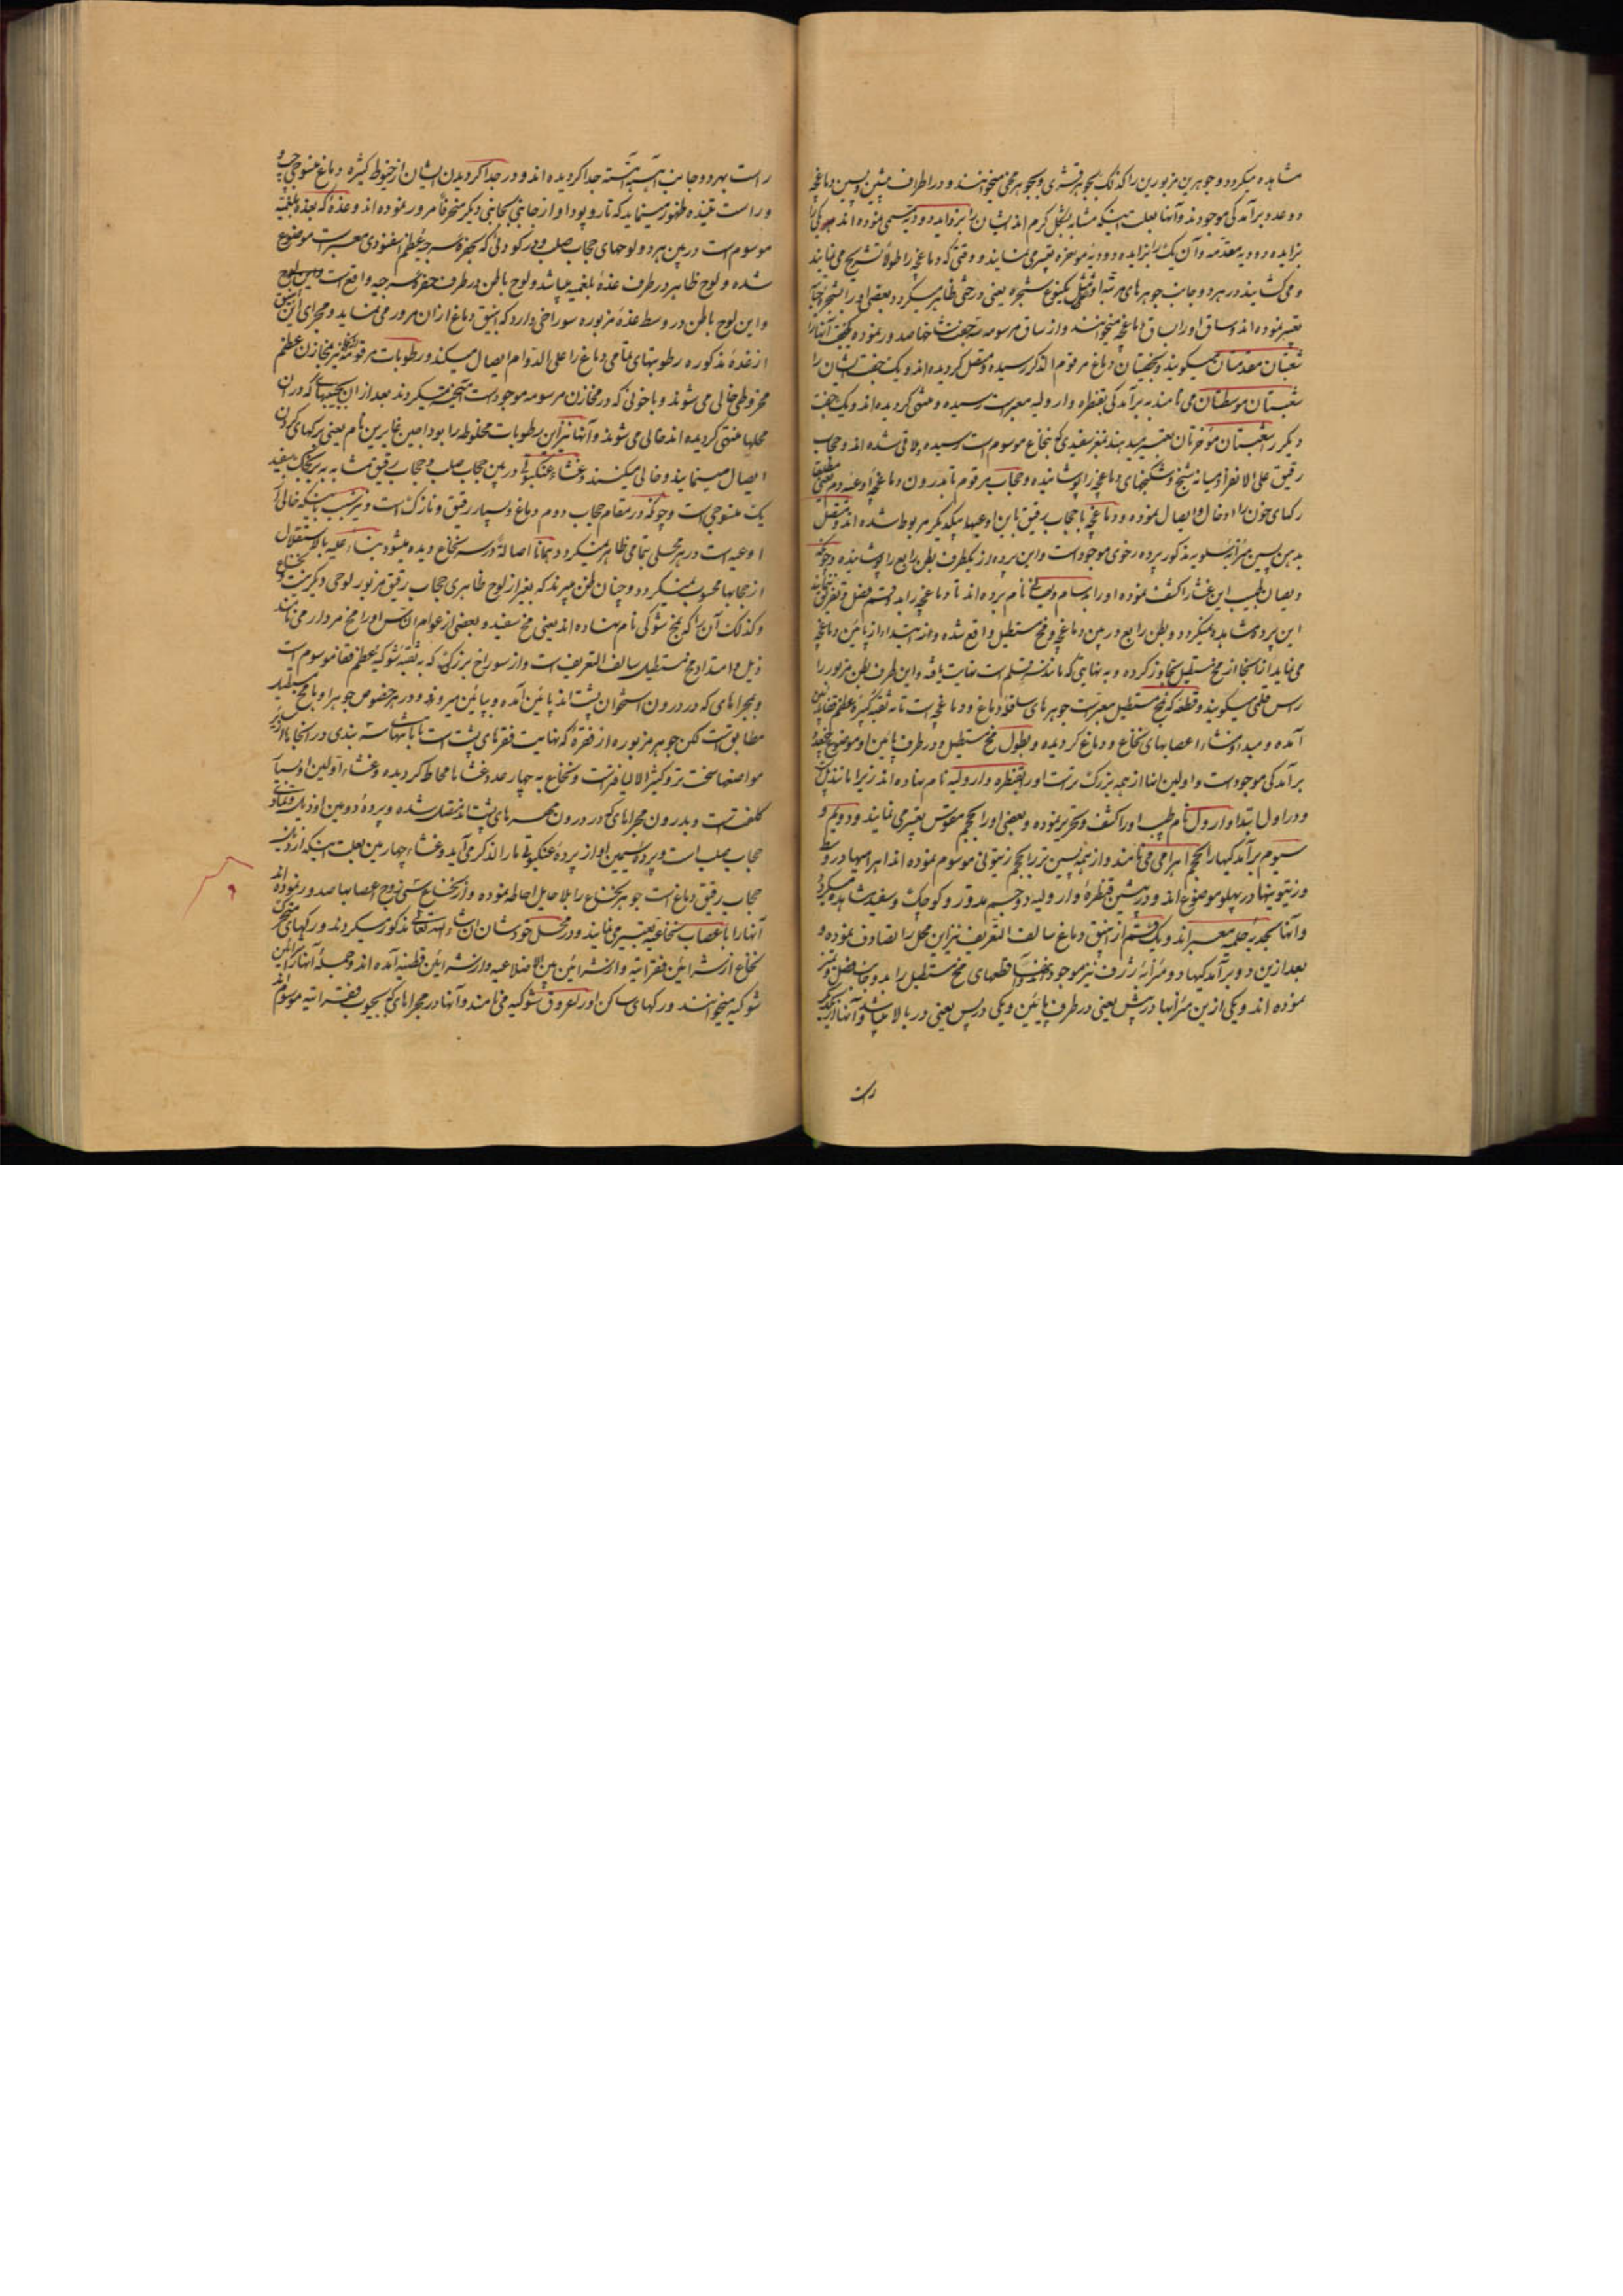 مشاهده میکردد و جوهرین مزبورین را کذلک بجوهر قشری و بجوهر مخی میخوانند و در اطراف پیشین و پسین دماغچه
دو عدد برآمدکی موجودند و آنها بعلت اینکه مشابه بشکل کرم اند ایشان را بزواید دودیه مسمی نموده اند
بزایده دودیه مقدمه و آن یک را بزایده دودیه موخره تعبیر می نمایند و وقتی که دماغچه را طولاً تشریح می نمایند
و می کشایند در هر دو جانب جوهرهای بیکنوع شجره یعنی درختی ظاهر میکردد بعضی او را بشجره حیات
تعبیر نموده اند و ساق او را بساق دماغچه میخوانند و از ساق مرسومه سه جفت شاخها صدور نموده یکجفت آنها را
شعبتان مقدمتان میکویند و بجفتیان دماغ مرقوم الذکر رسیده و متصل کردیده اند و یک جفت ایشان را
شعبتان موسطتان می نامند به برآمدکی بقنطره وارولیه معبرست رسیده و منتهی کردیده اند و یک جفت
دیکر را شعبتان موخرتان تعبیر میدهند بمغز سفیدی که بنخاع موسوم است رسیده ملاقی شده اند و حجاب
رقیق علی الانفراد میانه شنج و شکنجهای دماغچه را پوشانیده و حجاب مرقوم تا بدرون دماغچه اوعیه دم
رکهای خون را ادخال و ایصال نموده و دماغچه با حجاب رقیق باین اوعیها بیکدیکر مربوط شده اند و متصل
بدهن پسین مذکور پرده رخوی موجودست و این پرده از یکطرف بطن رابع را پوشانیده
ویصان طبیب این غشا را کشف نموده او را به نام برده اند تا دماغچه را بدو قسم فصل و تفریق
این پرده مشاهده میکردد و بطن رابع در بین دماغچه و مخ مستطیل واقع شده و از ابتدا از پائین دماغچه
می نماید از اینجا از مخ مستطیل تجاوز کرده و به نهایتی که مانند قلم است نهایت یافته و این طرف بطن مزبور را
رأس قلمی میکویند و قطعه که بمخ مستطیل معبرست جوهرهای ساقط دماغ و دماغچه است تا به ثقبه کبیره عظم قفا
آمده و مبدا و منشاء اعصابهای نخاع و دماغ کردیده و بطول مخ مستطیل و در طرف پائین او موضع
برآمدکی موجودست و اولین اینها از همه بزرک ترست او را بقنطره وارولیه نام نهاده اند زیرا مانند پل
و در اول ابتدا وارول نام طبیب او را کشف و تحریر نموده و بعضی او را بجسم مقوس تعبیر می نمایند و دویم و
سیوم برآمدکیها را بجسم اهرامی می نامند و از همه پسین تر را بجسم زیتونی موسوم نموده اند اهرامیها در وسط
و زیتونیها در پهلو موضوع اند و در پیشین قنطره وارولیه دو جسم مدور و کوچک و سفید مشاهده میکردد
و آنها بحدبه حلمه معبر اند و یک قسم از انبیق دماغ سالف التعریف نیز این محل را تصادف نموده و
بعد ازین دو برآمدکیها دو میزابه ژرف نیز موجود قطعهای مخ مستطیل را بدو جانب فصل و تمیز
نموده اند و یکی ازین میزابها در پیش یعنی در طرف پائین و یکی در پس یعنی در بالا میباشد
راست
راست بهر دو جانب آهسته آهسته جدا کردیده اند و در جدا کردیدن ایشان از خیوط کثیره دماغ منسوجی چپ و
و راست تنیده ظهور مینماید که تار و پود او از جانبی بجانبی دیکر منحرفاً مرور نموده اند و غده که بغده بلغمیه
موسوم است در بین هر دو لوحهای حجاب صلب و در کودالی که بحفره سرجیه عظم اسفنودی معبرست موضوع
شده و لوح ظاهر در طرف غده بلغمیه میباشد و لوح باطن در طرف حفره سرجیه واقع است
و این لوح باطن در وسط غده مزبوره سوراخی دارد که انبیق دماغ از ان مرور می نماید و مجرای این انبیق
از غده مذکوره رطوبتهای تمامی دماغ را علی الدوام ایصال میکند و رطوبات مرقومه نیز بمخازن عظم
مخروطی خالی می شوند و با خونی که در مخازن مرسومه موجودست آمیخته میکردند بعد از ان بجیبهائی که در ان
محلها منتهی کردیده اند خالی می شوند و آنها نیز این رطوبات مخلوطه را بوداجین غایرین نام یعنی برکهای کردن
ایصال مینمایند و خالی میکنند و غشاء عنکبوتی در بین حجاب صلب و حجاب رقیق مشابه به سفید
یک منسوجی است و چونکه در مقام حجاب دوم دماغ و بسیار رقیق و نازک است و نیز بسبب اینکه خالی از
اوعیه است در هر محلی بتمامی ظاهر نمیکردد و همانا اصالةً در سر نخاع دیده میشود بناء علیه بالاستقلال
از حجابها محسوب نمیکردد و چنان ظن میبرند که بغیر از لوح ظاهری حجاب رقیق مزبور لوحی دیکر نیست و نخاع
و کذلک آن را که بمخ شوکی نام نهاده اند یعنی مخ سفید و بعضی از عوام الناس او را مخ مردار می نامند
ذیل و امتداد مخ مستطیل سالف التعریف است و از سوراخ بزرکی که به ثقبه شوکیه عظم قفا موسوم است
و بمجراهای که در درون استخوان پشت اند پائین آمده و بپائین میرود و در هر خصوص جوهر او با مخ مستطیل
مطابق است لکن جوهر مزبوره از فقره که نهایت فقرهای پشت است تا بانتهاء
مواضعها سخت تر و کثیر الالیاف ترست و نخاع به چهار عدد غشاها محاط کردیده و غشاء اولین او بسیار
کلفت است و بدرون مجراهای که در درون مهرهای پشت اند متصل شده و پرده دومین او ذیل
حجاب صلب است و پرده سیمین او از پرده عنکبوتی مار الذکر می آید و غشاء چهارمین بعلت اینکه از ذیل
حجاب رقیق دماغ است جوهر نخاع را بلا حایل احاطه نموده و از نخاع سی زوج اعصابها صدور نموده اند
آنها را باعصاب نخاعیه تعبیر می نمایند و در محل خودشان ان شاء الله تعالی مذکور میکردند و رکهای متحرک
نخاع از شرائین فقراتیه و از شرائین بین الاضلاعیه و از شرائین قطنیه آمده اند و جمله آنها را شرائین
شوکیه میخوانند و رکهای ساکن او را بعروق شوکیه می نامند و آنها در مجراهای که بجیوب فقراتیه موسوم اند